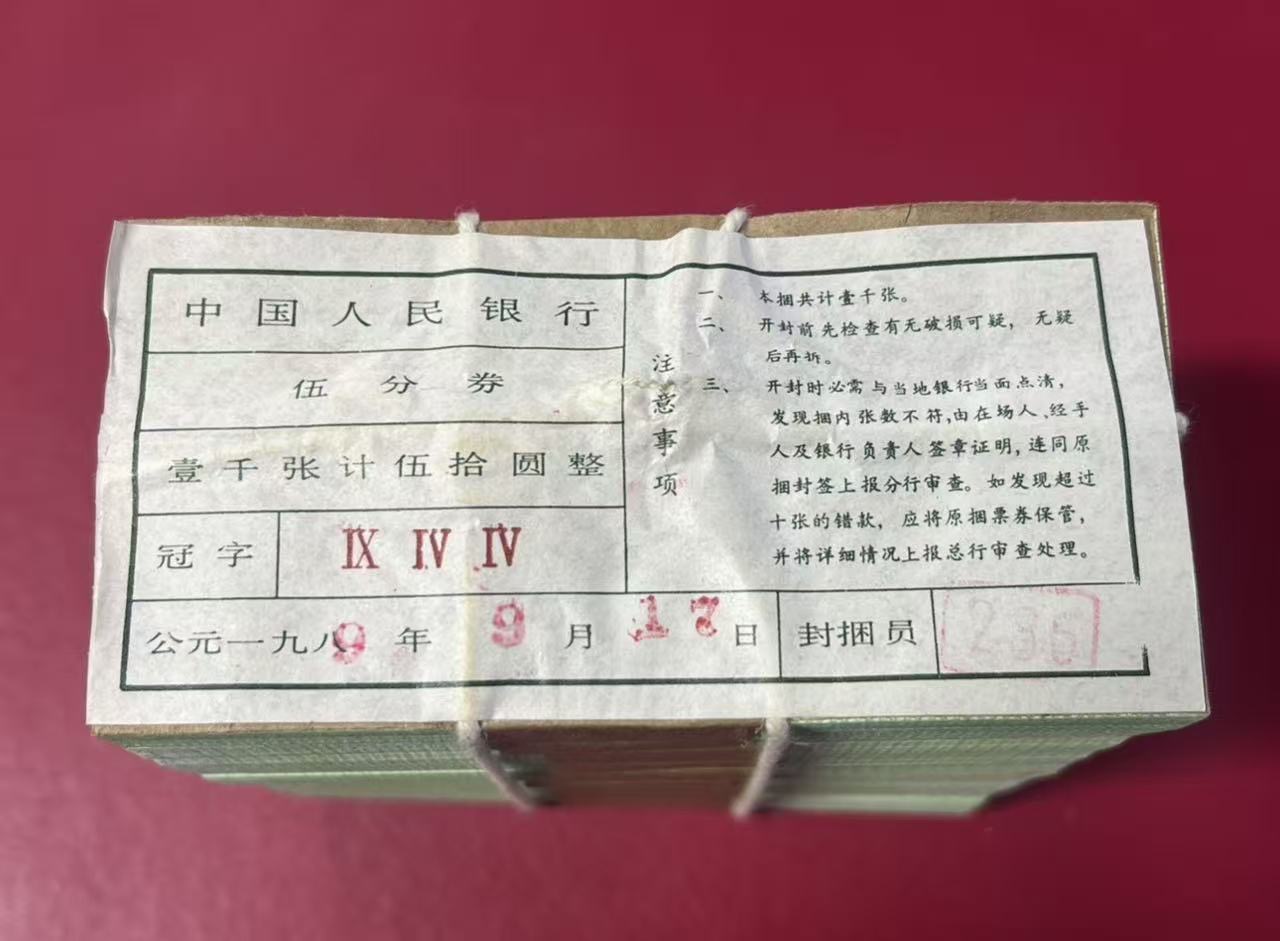 中国人民银行
伍分券
壹千张计伍拾圆整
冠字 IX IV IV
公元一九八9年 9月 17日 封捆员 236
注意事项
一、 本捆共计壹千张。
二、 开封前先检查有无破损可疑，无疑
后再拆。
三、 开封时必需与当地银行当面点清，
发现捆内张数不符，由在场人、经手
人及银行负责人签章证明，连同原
捆封签上报分行审查。如发现超过
十张的错款，应将原捆票券保管，
并将详细情况上报总行审查处理。